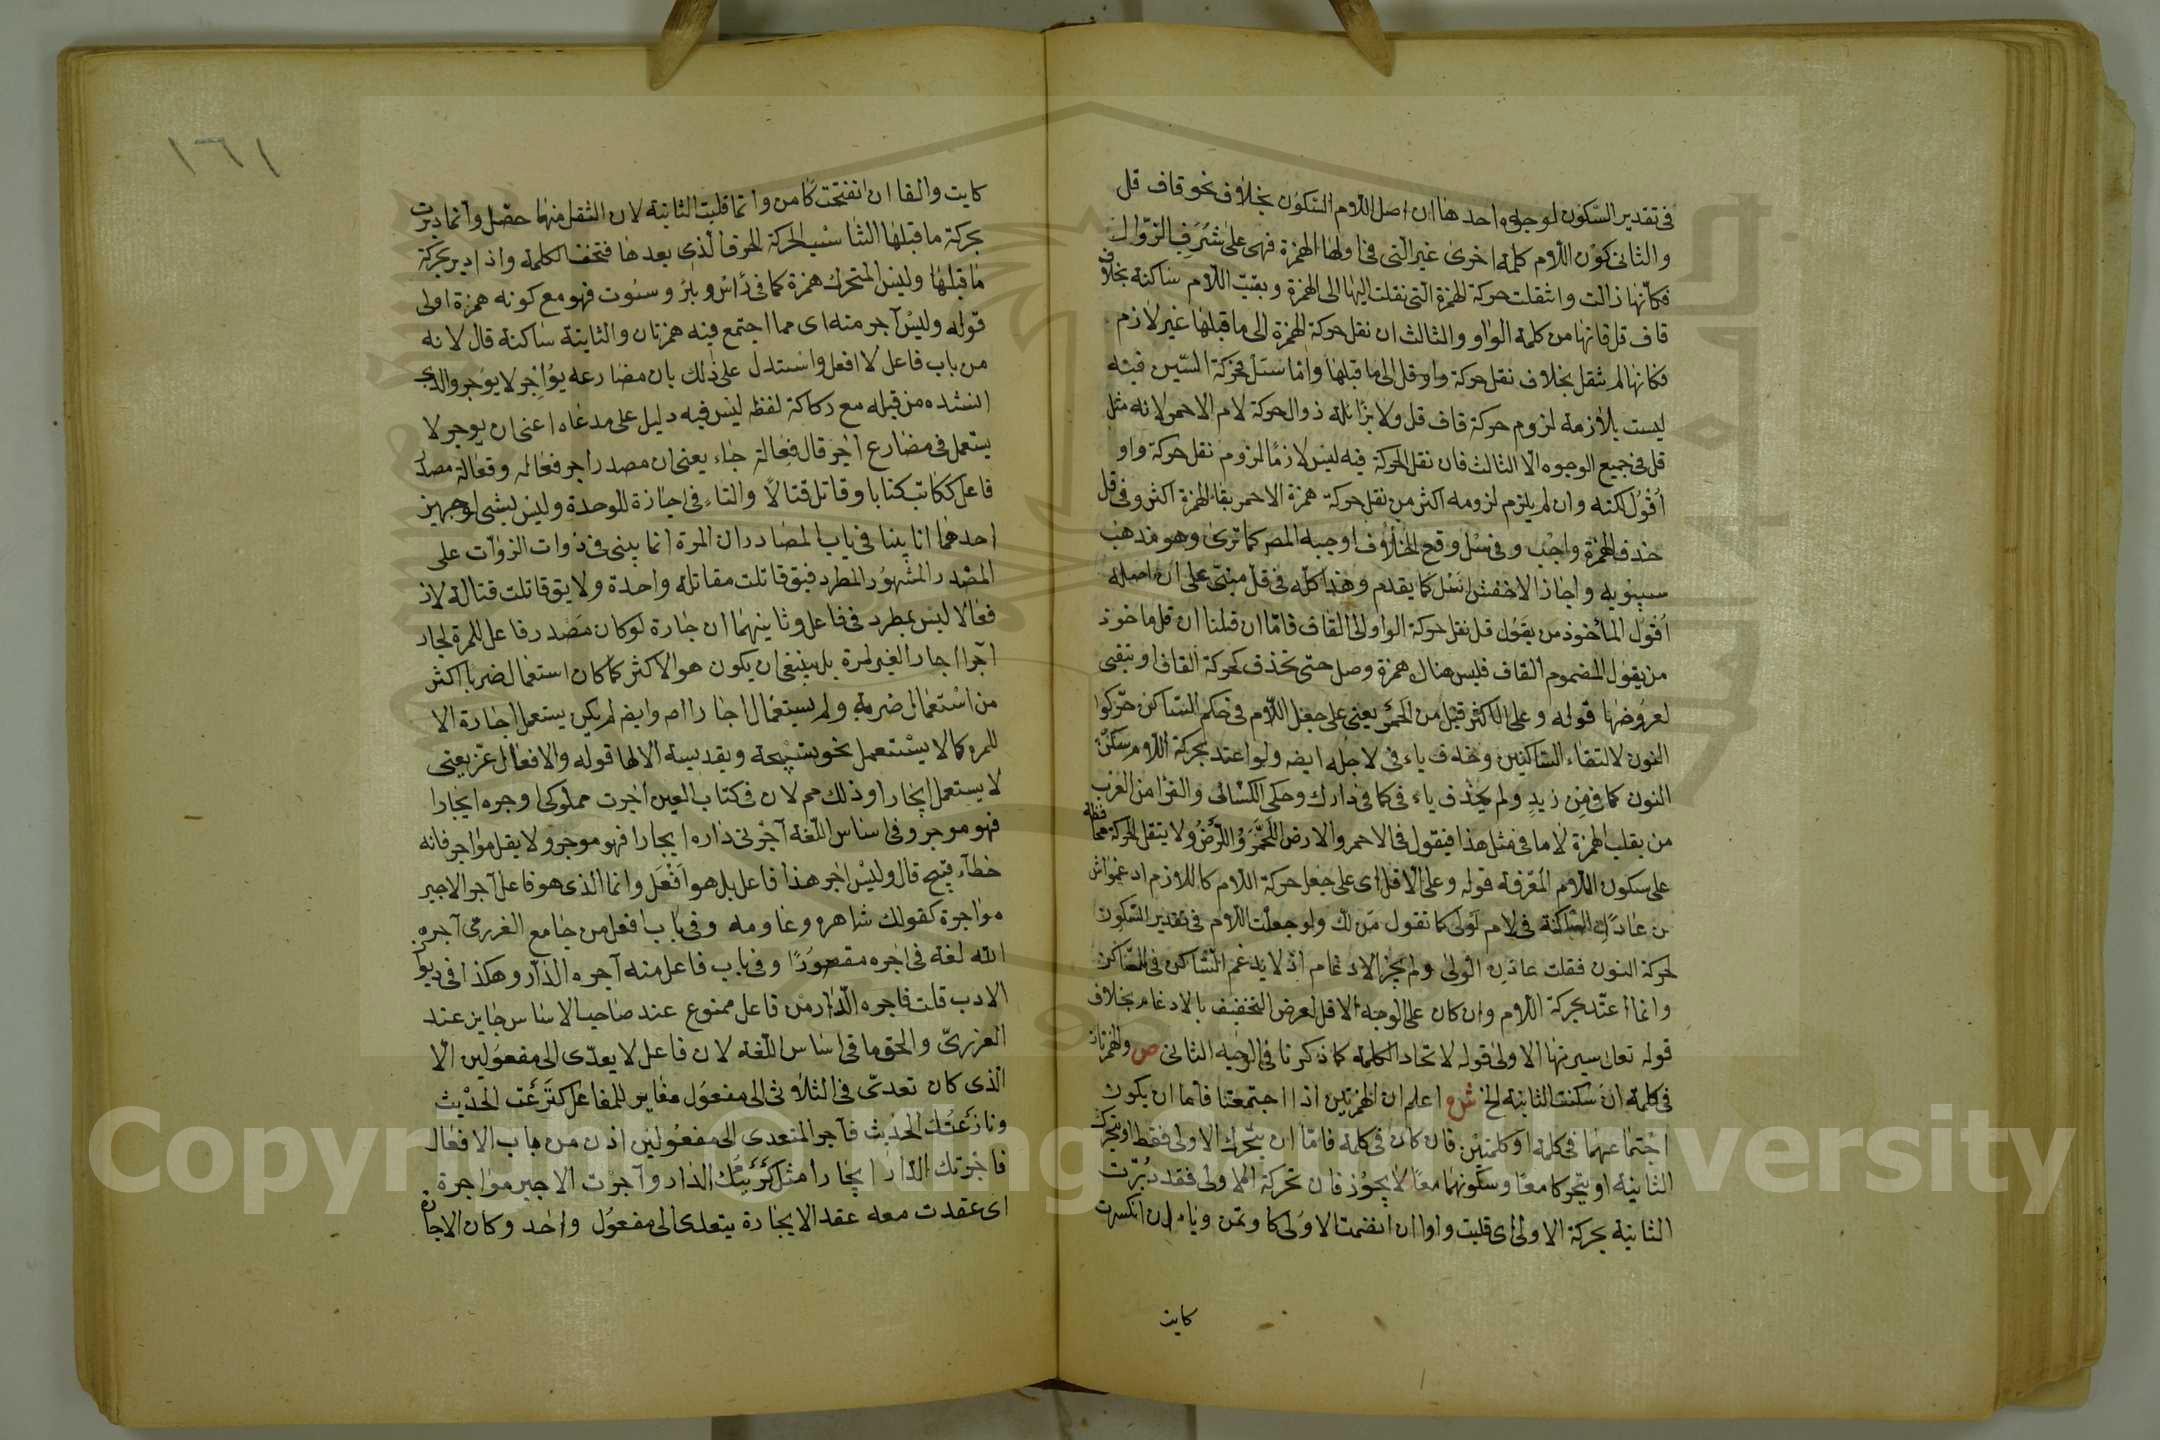 فى تقدير السّكون لوجوه احدها ان اصل اللام السّكون بخلاف نحو قاف قل
والثانى كون اللام كلمة اخرى غير التى فى اولها الهمزة فهى على شرف الزوال
فكأنها زالت وانتقلت حركة الهمزة التى نقلت اليها الى الهمزة وبقيت اللام ساكنة بخلاف
قاف قل فانها من كلمة الواو والثالث ان نقل حركة الهمزة الى ما قبلها غير لازم
فكانها لم تنقل بخلاف نقل حركة واو قل الى ما قبلها واما سَلْ فحركة السّين فيه
ليست بلازمة لزوم حركة قاف قل ولا بزائلة زوال حركة لام الاحمر لانه مثل
قل فى جميع الوجوه الا الثالث فان نقل الحركة فيه ليس لازمًا لزوم نقل حركة واو
اقول لكنه وان لم يلزم لزومه اكثر من نقل حركة همزة الاحمر بقاء الهمزة اكثر وفى قل
حذف الهمزة واجب وفى سل وقع الخلاف اوجبه المص كما ترى وهو مذهب
سيبويه واجاز الاخفش اسَل كما يقدم وهذا كله فى قل مبنى على ان اصله
اقول المأخوذ من يقول قبل نقل حركة الواو الى القاف فامّا ان قلنا ان قل ماخوذ
من يقول المضموم القاف فليس هناك همزة وصل حتى تحذف لحركة القاف او تبقى
لعروضها قوله وعلى الاكثر قيل من لَحمَرٍ يعنى على جعل اللام فى حكم الساكن حرّكوا
النون لالتقاء الساكنين وحذف ياء فى لاجله ايضا ولو اعتد بحركة اللام سكّن
النون كما فى مِن زيدٍ ولم يحذف ياء فى كما فى دارك وحكى الكسائى والفرّا من العرب
من يقلب الهمزة لاما فى مثل هذا فيقول فى الاحمر والارض اللَّحْمَرُ واللَّرْضُ ولا ينقل الحركة محافظة
على سكون اللام المعرّفة قوله وعلى الاقل اى على جعل حركة اللام كاللازم ادغموا تنوين
عادًا الساكنة فى لام لُولى كما تقول مَن لَك ولو جعلت اللام فى تقدير السّكون
لحركة النون فقلت عادن الولى ولم يجز الادغام اذ لا يدغم الساكن فى الساكن
وانما اعتد بحركة اللام وان كان على الوجه الاقل لغرض التخفيف بالادغام بخلاف
قوله تعالى سيرتها الاولى قوله لاتحاد الكلمة كما ذكرنا فى الوجه الثانى ص والهمزتان
فى كلمة ان سكنت الثانية الخ ش اعلم ان الهمزتين اذا اجتمعتا فاما ان يكون
اجتماعهما فى كلمة او كلمتين فان كان فى كلمة فامّا ان يتحرك الاولى فقط او يتحرك
الثانية او يتحركا معًا وسكونهما معًا لا يجوز فان تحركت الاولى فقد دبّرت
الثانية بحركة الاولى اى قلبت واوا ان انضمت الاولى كاوتمن وياء ان انكسرت
كايت
كايت والفا ان انفتحت كامن وانما قلبت الثانية لان الثقل منها حصل وانما دبرت
بحركة ما قبلها لتناسب الحركة الحرف الذى بعدها فتخف الكلمة واذا دبر بحركة
ما قبلها وليس المتحرك همزة كما فى رأس وبئر وسئوت فهو مع كونه همزة اولى
قوله وليس آجر منه اى مما اجتمع فيه همزتان والثانية ساكنة قال لانه
من باب فاعل لا افعل واستدل على ذلك بان مضارعه يؤاجر لا يوجر والذى
انشده من قبله مع ركاكة لفظه ليس فيه دليل على مدعاه اعنى ان يوجر لا
يستعمل فى مضارع آجر قال فِعالة جاء يعنى ان مصدر اجر فعاله وفعالة مصدر
فاعل ككاتب كتابا وقاتل قتالًا والتاء فى اجارة للوحدة وليس بشى لوجهين
احدهما انا بينا فى باب المصادر ان المرة انما يبنى فى ذوات الزوائد على
المصدر المشهور المطرد فيق قاتلت مقاتلة واحدة ولا يق قاتلت قتالة لان
فعالا ليس بمطرد فى فاعل وثانيهما ان جارة لو كان مصدر فاعل للمرة لجاز
آجرا اجارا لغير لمرة بل ينبغى ان يكون هو الاكثر كما كان استعمال ضربا اكثر
من استعمال ضربة ولم يستعمال اجارا اصلا وايضا لم يكن يستعمل اجارة الا
للمرة كما لا يستعمل نحو تسبيحة وتقديسة الا لها قوله والافعال عزّ يعنى
لا يستعمل ايجارا وذلك مم لان فى كتاب العين اجرت مملوكى اوجره ايجارا
فهو موجر وفى اساس اللغة آجرنى داره ايجارا فهو موجر ولا يقل مؤاجر فانه
خطأ قبيح قال وليس اجر هذا فاعل بل هو افعل وانما الذى هو فاعل آجر الاجير
مواجرة كقولك شاهره وعاومه وفى باب افعل من جامع الغررى آجره
الله لغة فى اجره مقصورًا وفى باب فاعل منه آجره الدار وهكذا فى ديوان
الادب قلت فاجره الدار من فاعل ممنوع عند صاحب الاساس جايز عند
الغررى والحق ما فى اساس اللغة لان فاعل لا يعدّى الى مفعولين الا
الذى كان تعدّى فى الثلاثى الى مفعول مغاير للمفاعل كنَزَعْت الحديث
ونازَعْتُك الحديث فآجر المتعدى الى مفعولين اذن من باب الافعال
فآجرتك الدار ايجارا مثل اكريتك الدار وآجرت الاجير مواجرة
اى عقدت معه عقد الايجارة يتعدى الى مفعول واحد وكان الاجارة
١٦١
Copyright © King Saud University